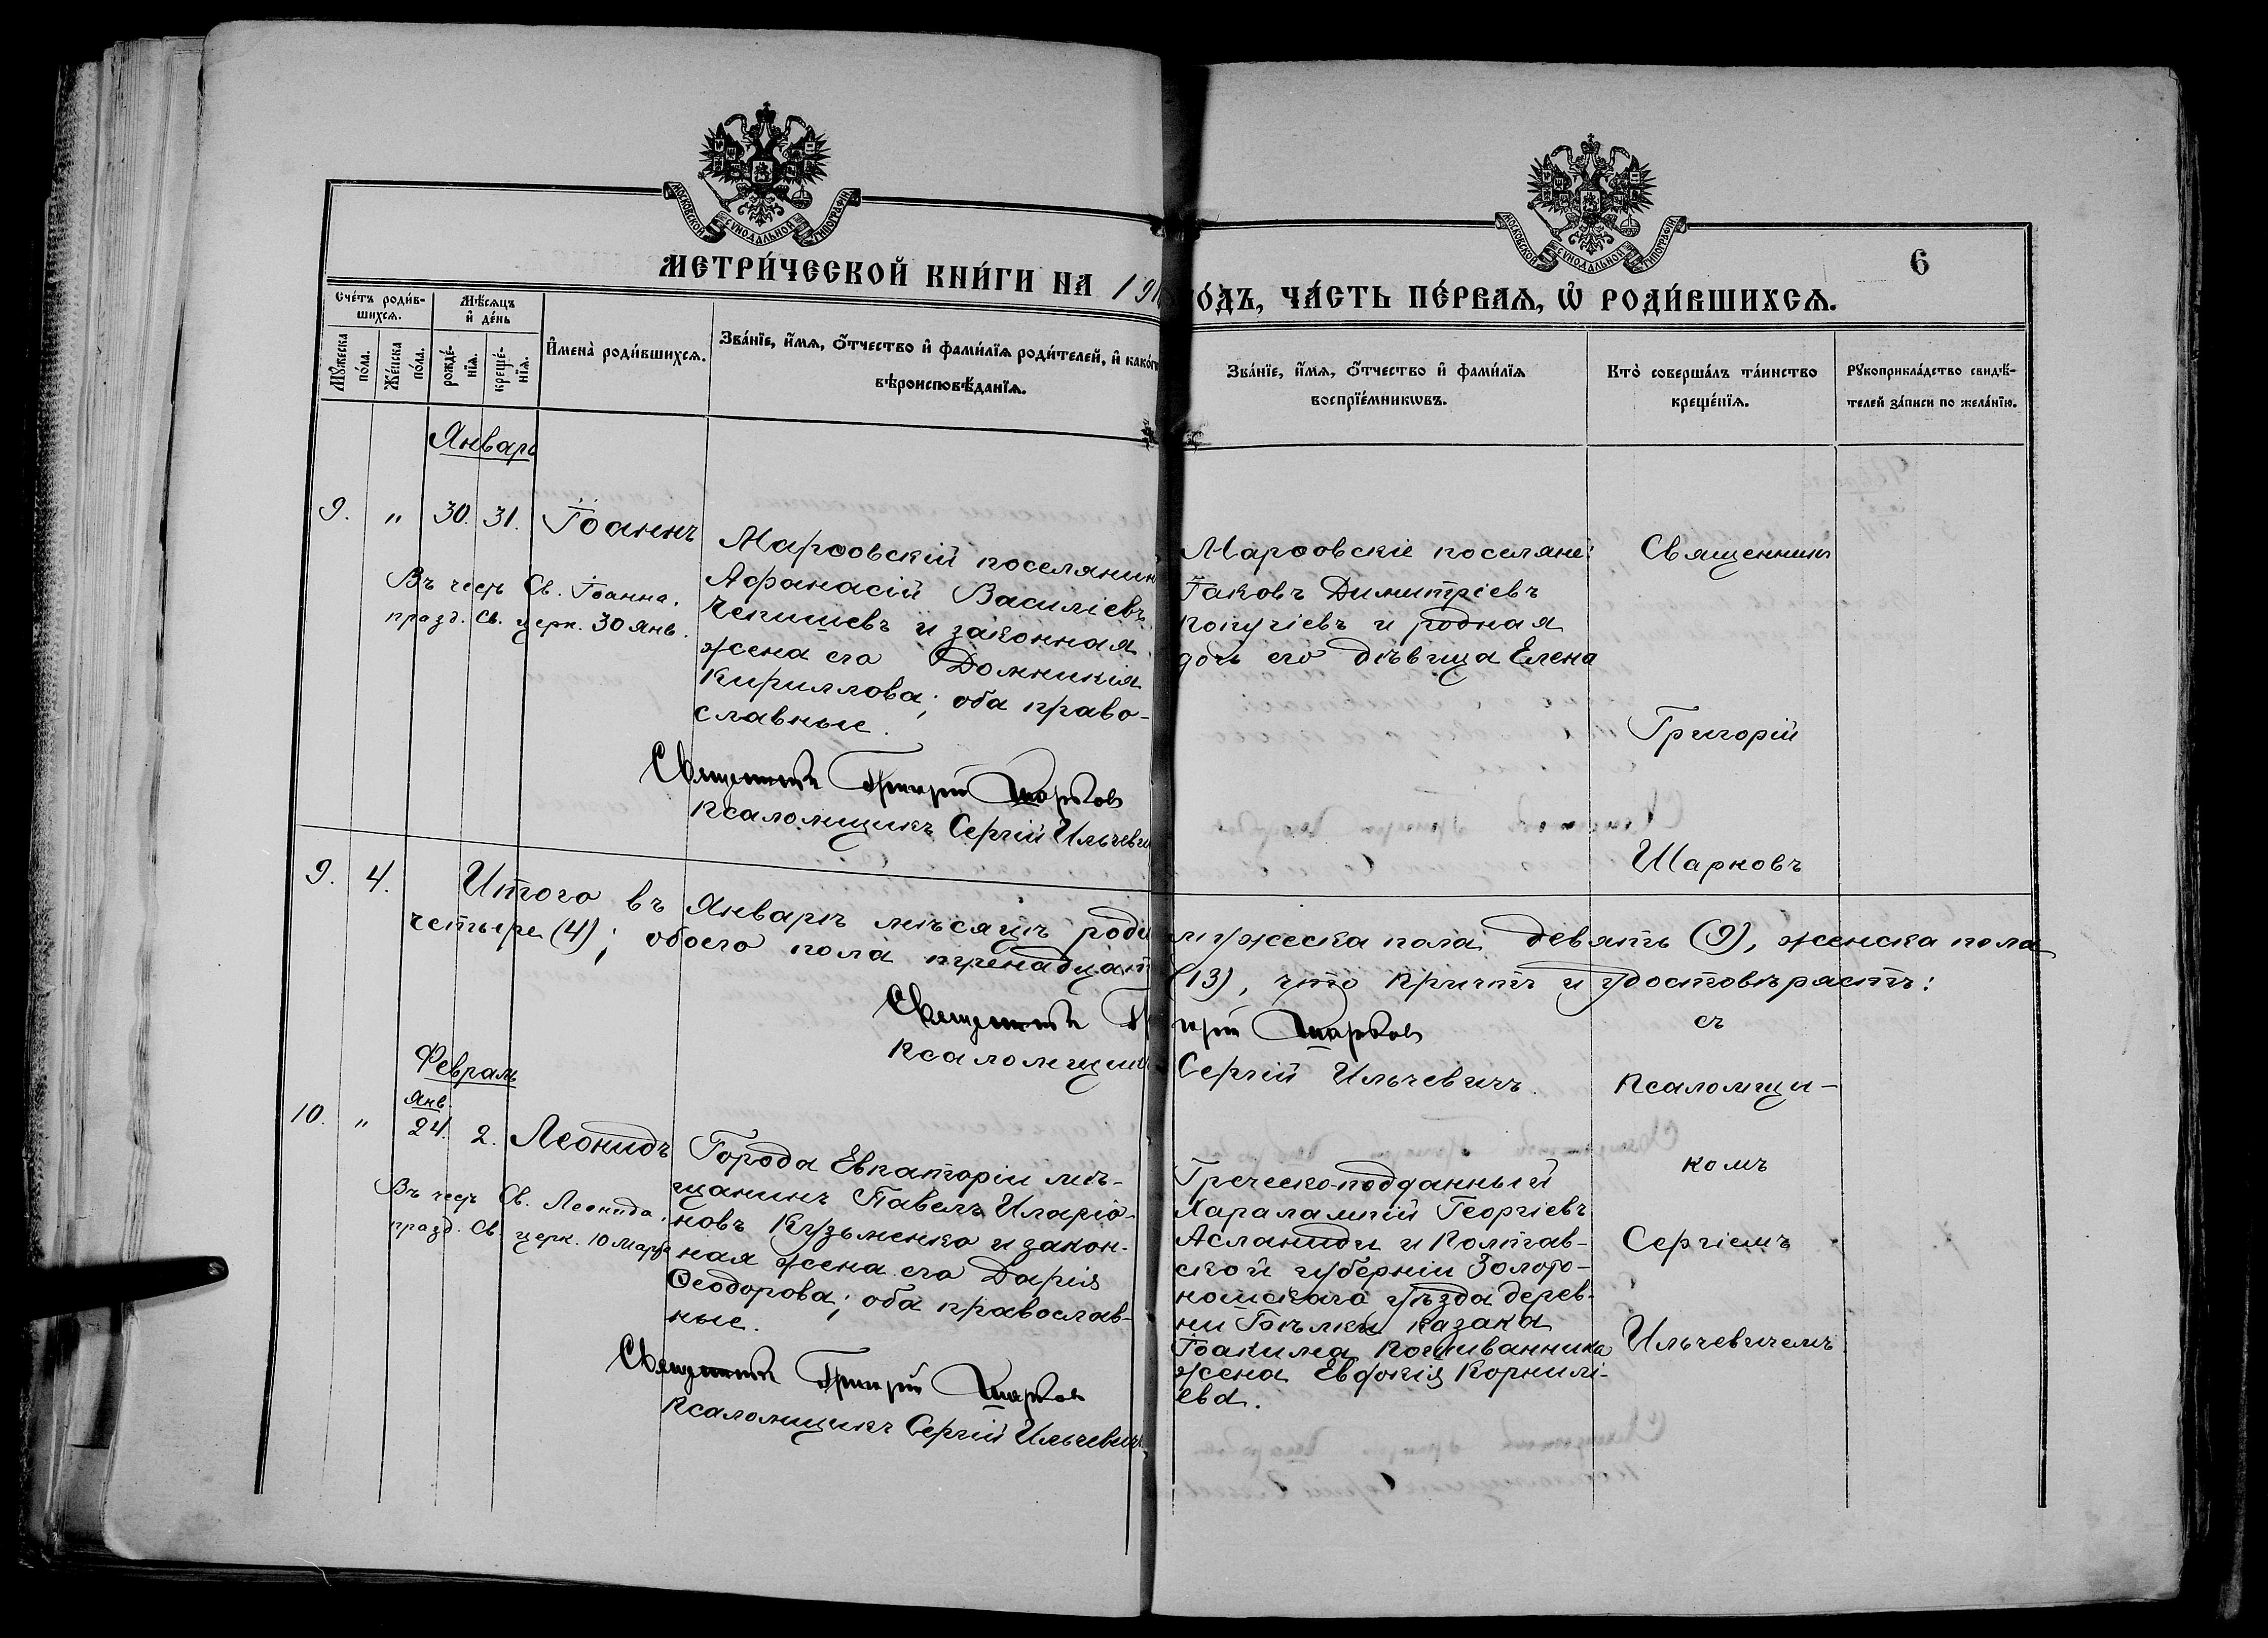 МОСКОВСКОЙ СѴНОДАЛЬНОЙ ТИПОГРАФІИ
МОСКОВСКОЙ СѴНОДАЛЬНОЙ ТИПОГРАФІИ
6
МЕТРИ́ЧЕСКОЙ КНИ́ГИ НА 191
О́ДЪ, ЧА́СТЬ ПЕ́РВАѦ, Ѡ҆ РОДИ́ВШИХСѦ.
Сче́тъ роди́в-
шихсѧ.
Мѣ́сѧцъ
и҆ де́нь
Мꙋ́жеска
по́ла.
Же́нска
по́ла.
рожде́-
нїѧ.
креще́-
нїѧ.
И҆мена̀ роди́вшихсѧ.
Зва́нїе, и҆́мѧ, ѻ҆́тчество и҆ фами́лїѧ роди́телей, и҆ како́гѡ
вѣроисповѣ́данїѧ.
Зва́нїе, и҆́мѧ, ѻ҆́тчество и҆ фами́лїѧ
воспрїе́мникѡвъ.
Кто̀ соверша́лъ та́инство
креще́нїѧ.
Рꙋкоприкла́дство свидѣ́-
телей за́писи по жела́нїю.
Январь
9. " 30. 31. Іоаннъ
Въ честь Св. Іоанна,
празд. Св. церк. 30 Янв.
Марѳовскій поселянин
Аѳанасій Василіевъ
Чекишевъ и законная
жена его Домникія
Кириллова; оба право-
славные.
Священникъ Григорій Шарков
Псаломщикъ Сергій Ильчевич
Марѳовскіе поселяне:
Іаковъ Димитріевъ
Копучіевъ и родная
дочь его дѣвица Елена
Священникъ
Григорій
Шарковъ
9. 4. Итого въ Январѣ мѣсяцѣ роди мужеска пола девять (9), женска пола
четыре (4); обоего пола тринадцат (13), что причтъ и удостовѣряетъ:
Священникъ Григорій Шарков
Псаломщикъ Сергій Ильчевичъ.
съ
Псаломщи-
комъ
Сергіемъ
Ильчевичемъ
Февраль
Янв.
10. " 24. 2. Леонидъ
Въ честь Св. Леонида,
празд. Св. церк. 10 Марта
Города Евпаторіи мѣ-
щанинъ Павелъ Иларіо-
новъ Кузьменко и закон-
ная жена его Дарія
Ѳеодорова; оба православ-
ные.
Священникъ Григорій Шарков
Псаломщикъ Сергій Ильчевичъ.
Греческо-подданный
Харалампій Георгіевъ
Асланиди и Полтав-
ской губерніи Золото-
ношскаго уѣзда дерев-
ни Бѣлки казака
Іоакима Кошиванника
жена Евдокія Корнилі-
ева.